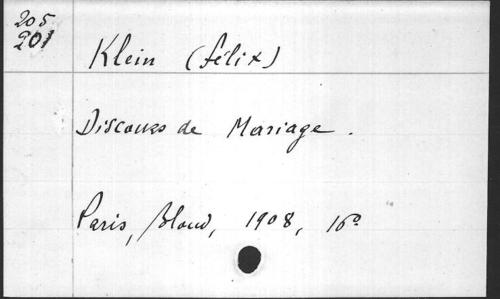 205
201
Klein (félix)
Discours de Mariage.
Paris, Bloud, 1908, 16º